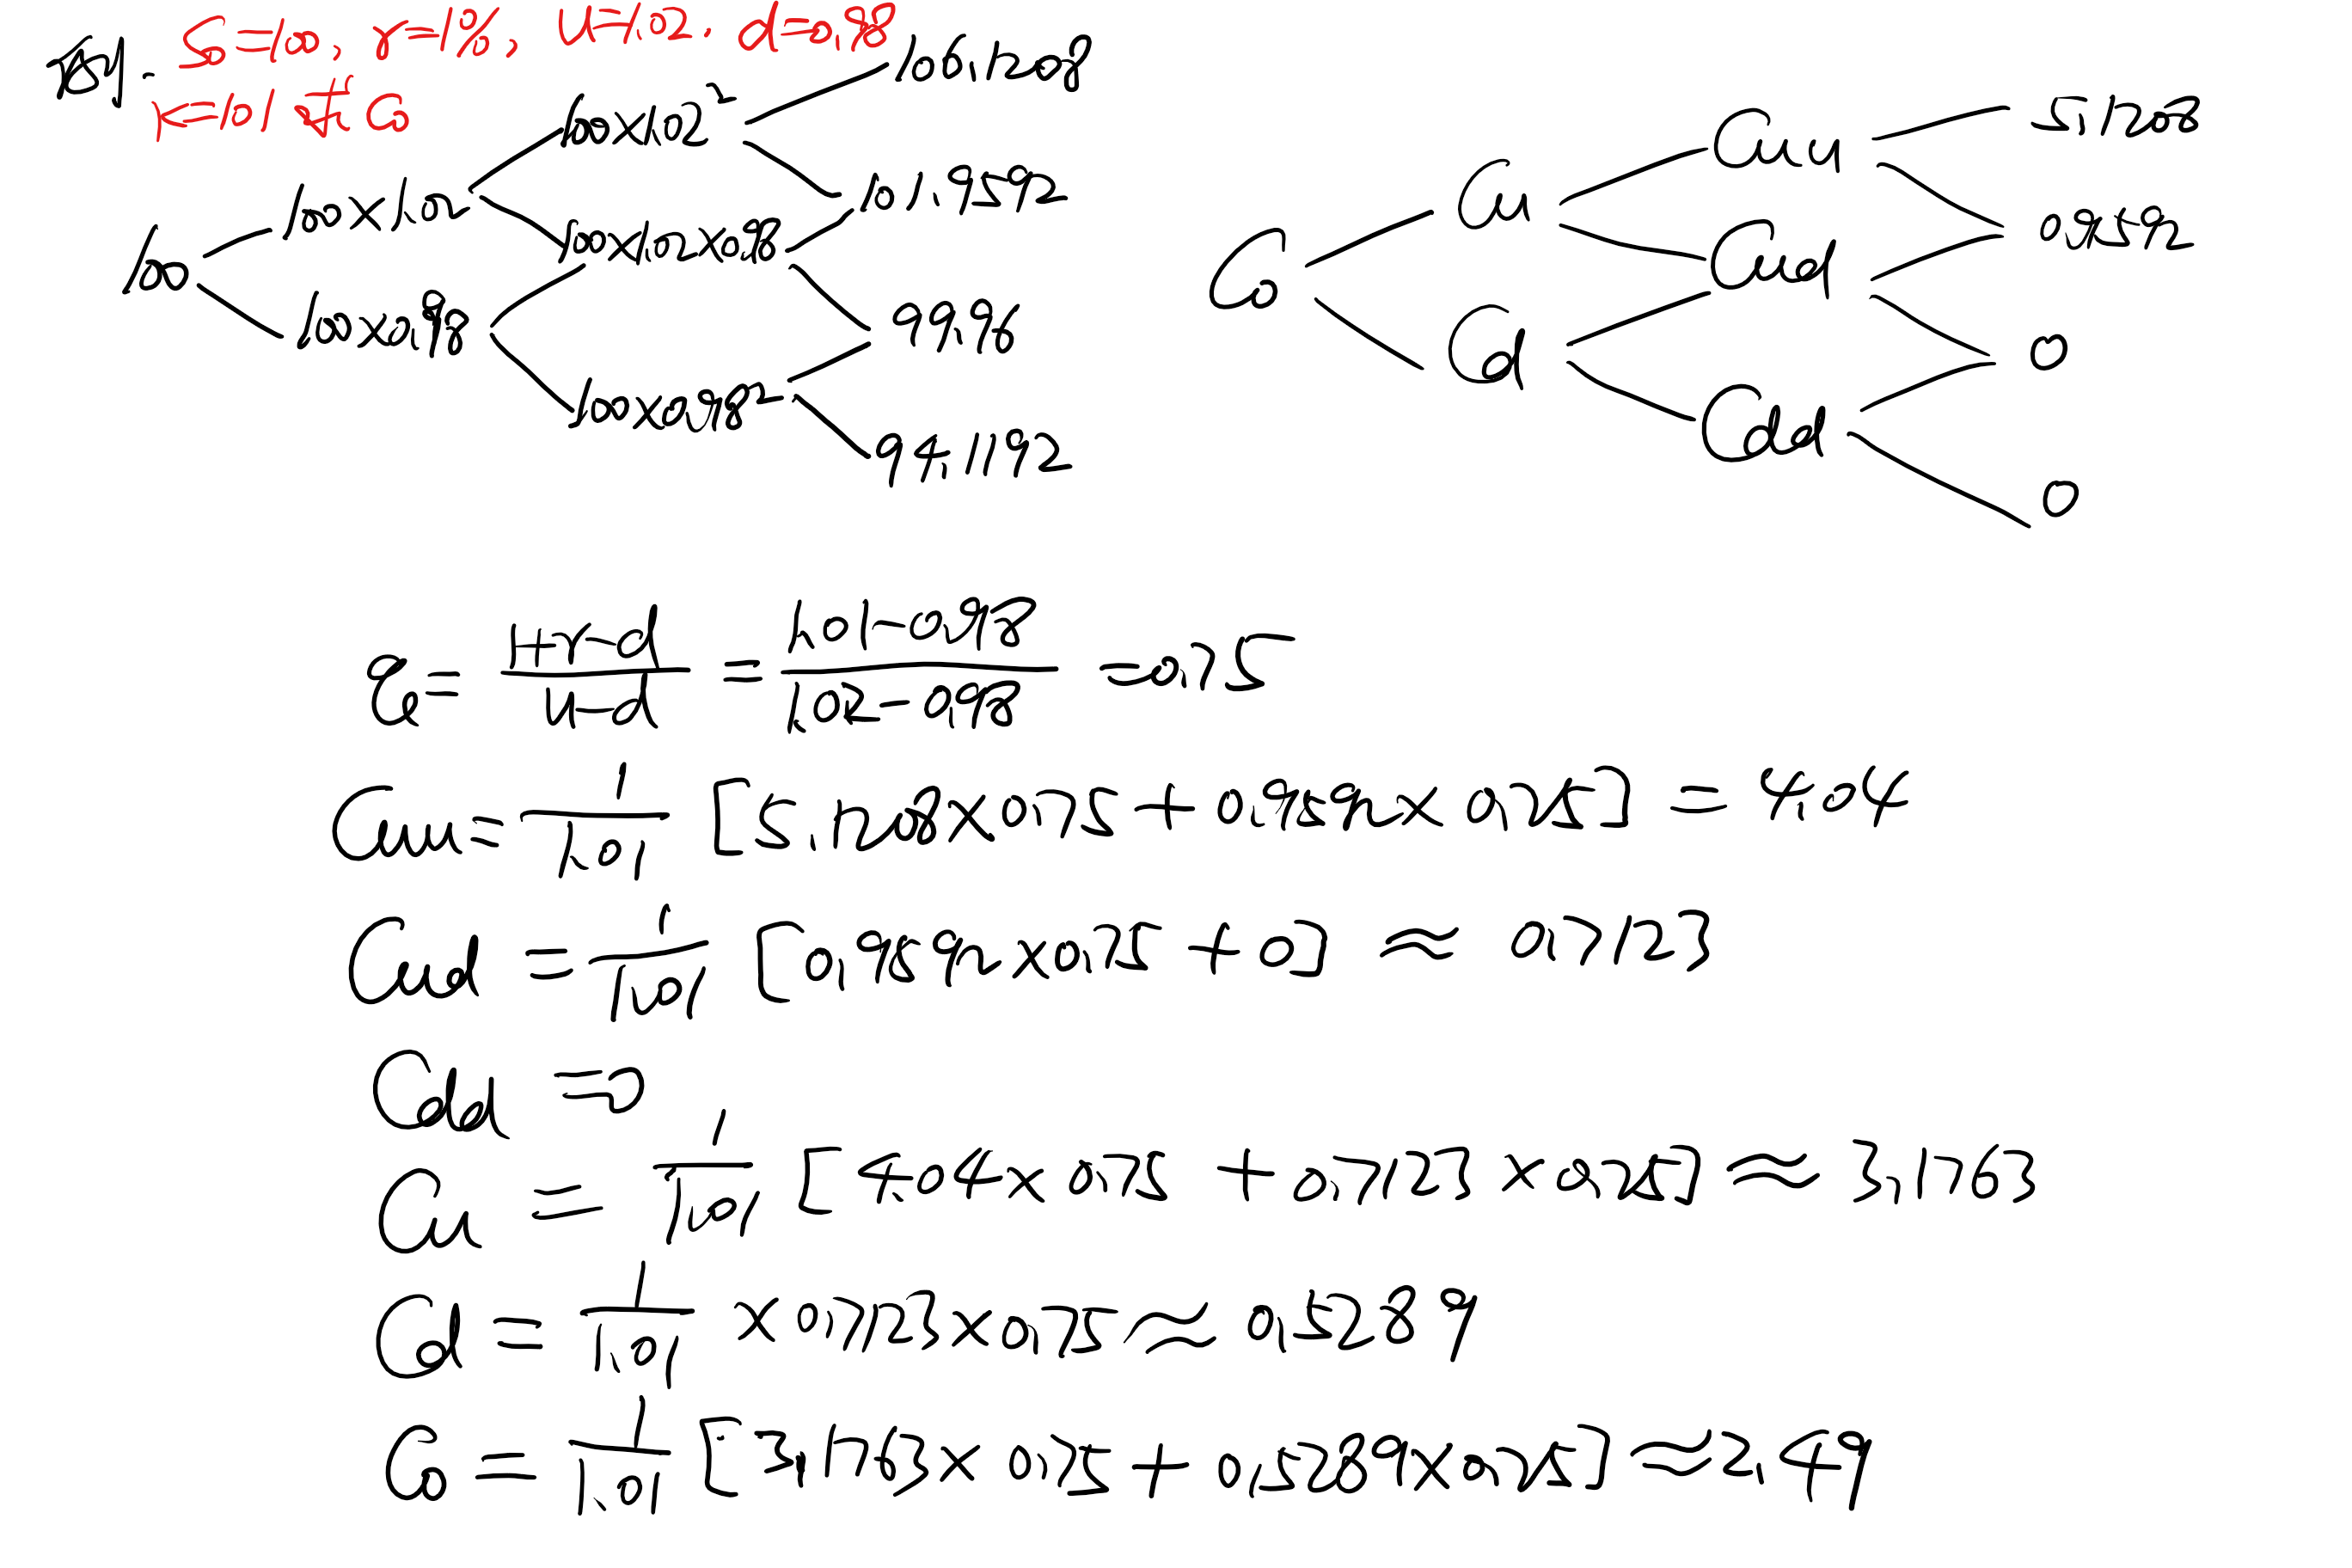 例. S=100, r=1%, u=1.02, d=0.98
K=101 求C₀
100
100×1.02
100×0.98
100×1.02²
100×1.02×0.98
100×0.98²
106.1208
101.9592
97.9608
94.1192
C₀
Cu
Cd
Cuu
Cud
Cdd
5.1208
0.9592
0
0
q = (1+r-d)/(u-d) = (1.01-0.98)/(1.02-0.98) = 0.75
Cuu = 1/1.01 [5.1208×0.75 + 0.9592×0.25] = 4.04
Cud = 1/1.01 [0.9592×0.75 + 0] ≈ 0.7123
Cdd = 0
Cu = 1/1.01 [4.04×0.75 + 0.7123×0.25] ≈ 3.1763
Cd = 1/1.01 ×0.7123×0.75 ≈ 0.5289
C₀ = 1/1.01 [3.1763×0.75 + 0.5289×0.25] ≈ 2.49